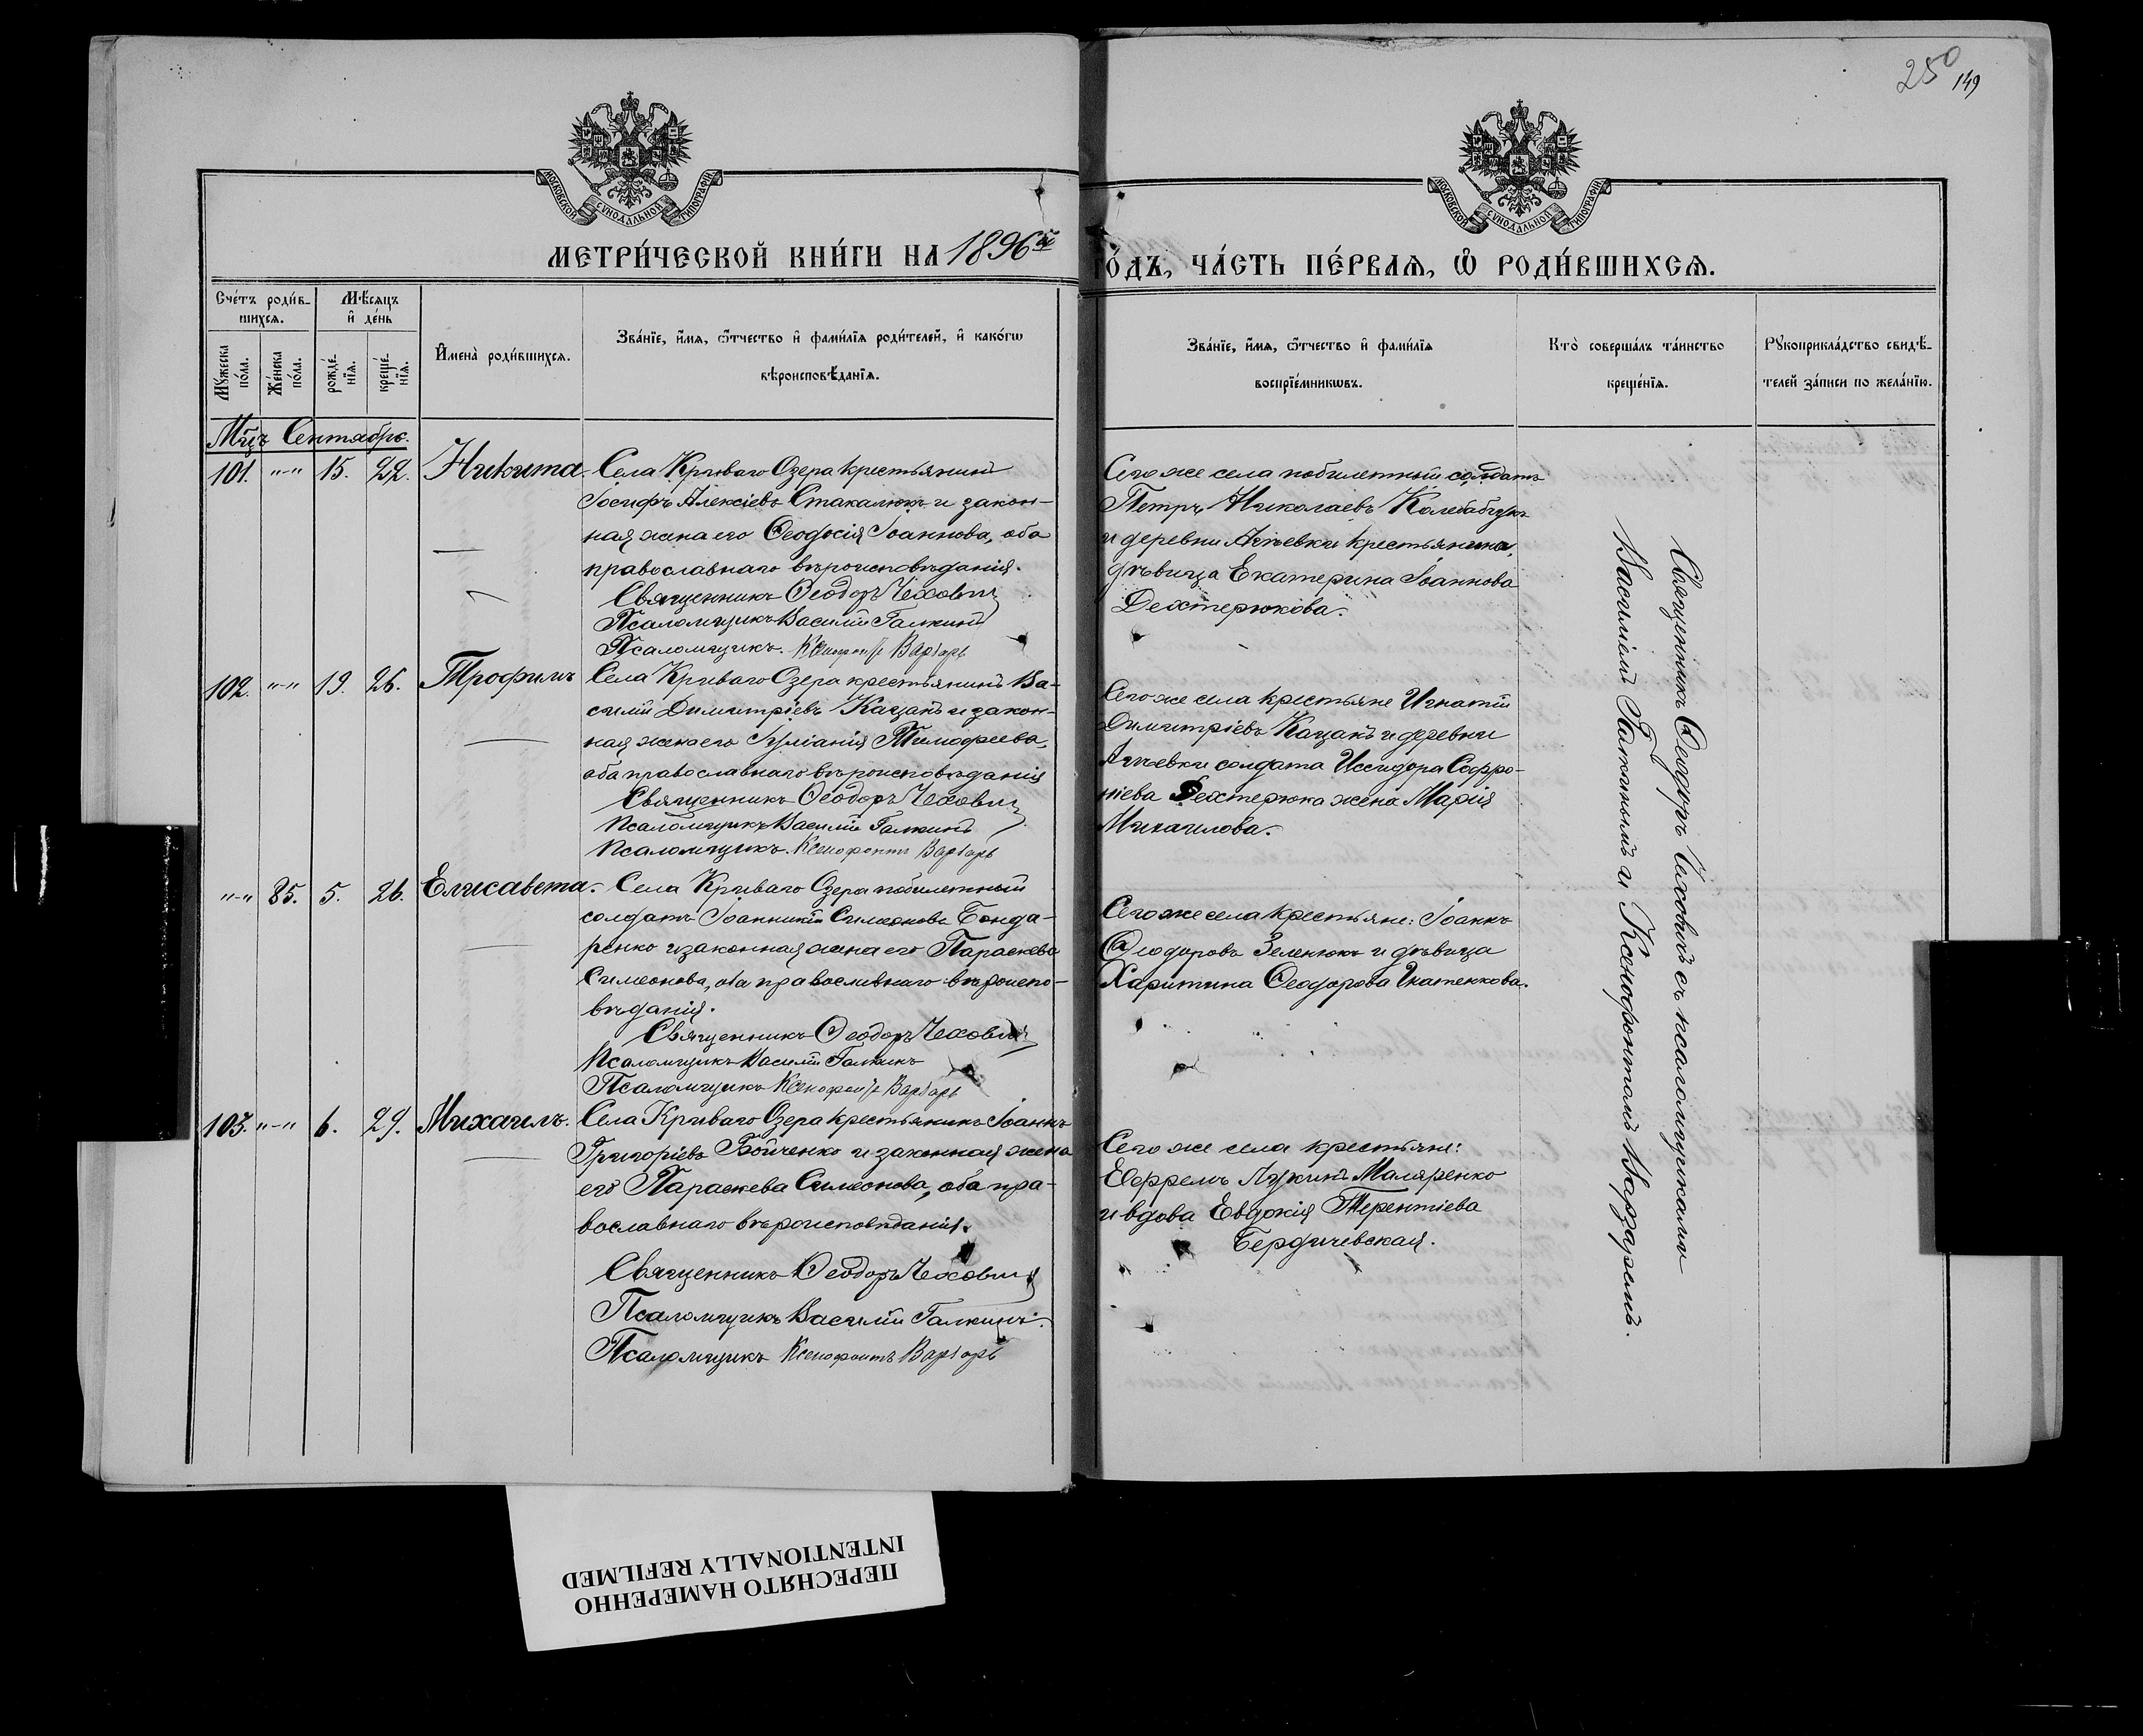 250 149
МОСКОВСКОЙ СѴНОДАЛЬНОЙ ТИПОГРАФІИ
МОСКОВСКОЙ СѴНОДАЛЬНОЙ ТИПОГРАФІИ
МЕТРИ́ЧЕСКОЙ КНИ́ГИ НА 1896й
ГО́ДЪ, ЧА́СТЬ ПЕ́РВАѦ, Ѽ РОДИ́ВШИХСѦ.
Сче́тъ роди́в-
шихсѧ.
Мꙋ́жеска по́ла.
Же́нска по́ла.
Мѣ́сѧцъ
и҆ де́нь
рожде́-
нїѧ.
креще́-
нїѧ.
И҆мена̀ роди́вшихсѧ.
Зва́нїе, и҆́мѧ, ѻ҆́тчество и҆ фами́лїѧ роди́телей, и҆ како́гѡ
вѣроисповѣ́данїѧ.
Зва́нїе, и҆́мѧ, ѻ҆́тчество и҆ фами́лїѧ
воспрїе́мникѡвъ.
Кто̀ соверша́лъ та́инство
креще́нїѧ.
Рꙋкоприкла́дство свидѣ́-
телей за́писи по жела́нїю.
Мцъ Сентябрь.
101. "-" 15. 22. Никита.
Села Криваго Озера крестьянинъ
Іосифъ Алексіевъ Стакалюкъ и закон-
ная жена его Ѳеодосія Іоаннова, оба
православнаго вѣроисповѣданія.
Священникъ Ѳеодоръ Чехович
Псаломщикъ Василій Галкинъ
Псаломщикъ. Ксенофонтъ Варзарь
Сего же села побилетный солдатъ
Петръ Николаевъ
и деревни крестьянина,
дѣвица Екатерина Іоаннова
Дехтерюкова.
102. "-" 19. 26. Трофимъ
Села Криваго Озера крестьянинъ Ва-
силій Димитріевъ Кацанъ и закон-
ная жена его Іуліанія Тимофеева,
оба православнаго вѣроисповѣданія
Священникъ Ѳеодоръ Чехович
Псаломщикъ Василій Галкинъ
Псаломщикъ. Ксенофонтъ Варзарь
Сего же села крестьяне Игнатій
Димитріевъ Кацанъ и деревни
солдата Исидора Софро-
ніева Дехтерюка жена Марія
Михаилова.
"-" 85. 5. 26. Елисавета.
Села Криваго Озера побилетный
солдатъ Іоанникій Симеоновъ Бонда-
ренко и законная жена его Параскева
Симеонова, оба православнаго вѣроиспо-
вѣданія.
Священникъ Ѳеодоръ Чехович
Псаломщикъ Василій Галкинъ
Псаломщикъ Ксенофонтъ Варзарь
Сего же села крестьяне: Іоаннъ
Ѳеодоровъ Зеленюкъ и дѣвица
Харитина Ѳеодорова Игнатенкова.
103. "-" 6. 29. Михаилъ.
Села Криваго Озера крестьянинъ Іоаннъ
Григоріевъ Бойченко и законная жена
его Параскева Симеонова, оба пра-
вославнаго вѣроисповѣданія.
Священникъ Ѳеодоръ Чехович
Псаломщикъ Василій Галкинъ.
Псаломщикъ Ксенофонтъ Варзарь
Сего же села крестьяне:
Ефремъ Лукинъ Маляренко
и вдова Евдокія Терентіева
Бердичевская.
Священникъ Ѳеодоръ Чеховичъ съ псаломщиками
Василіемъ Галкинымъ и Ксенофонтомъ Варзаремъ.
ПЕРЕСНЯТО НАМЕРЕННО
INTENTIONALLY REFILMED